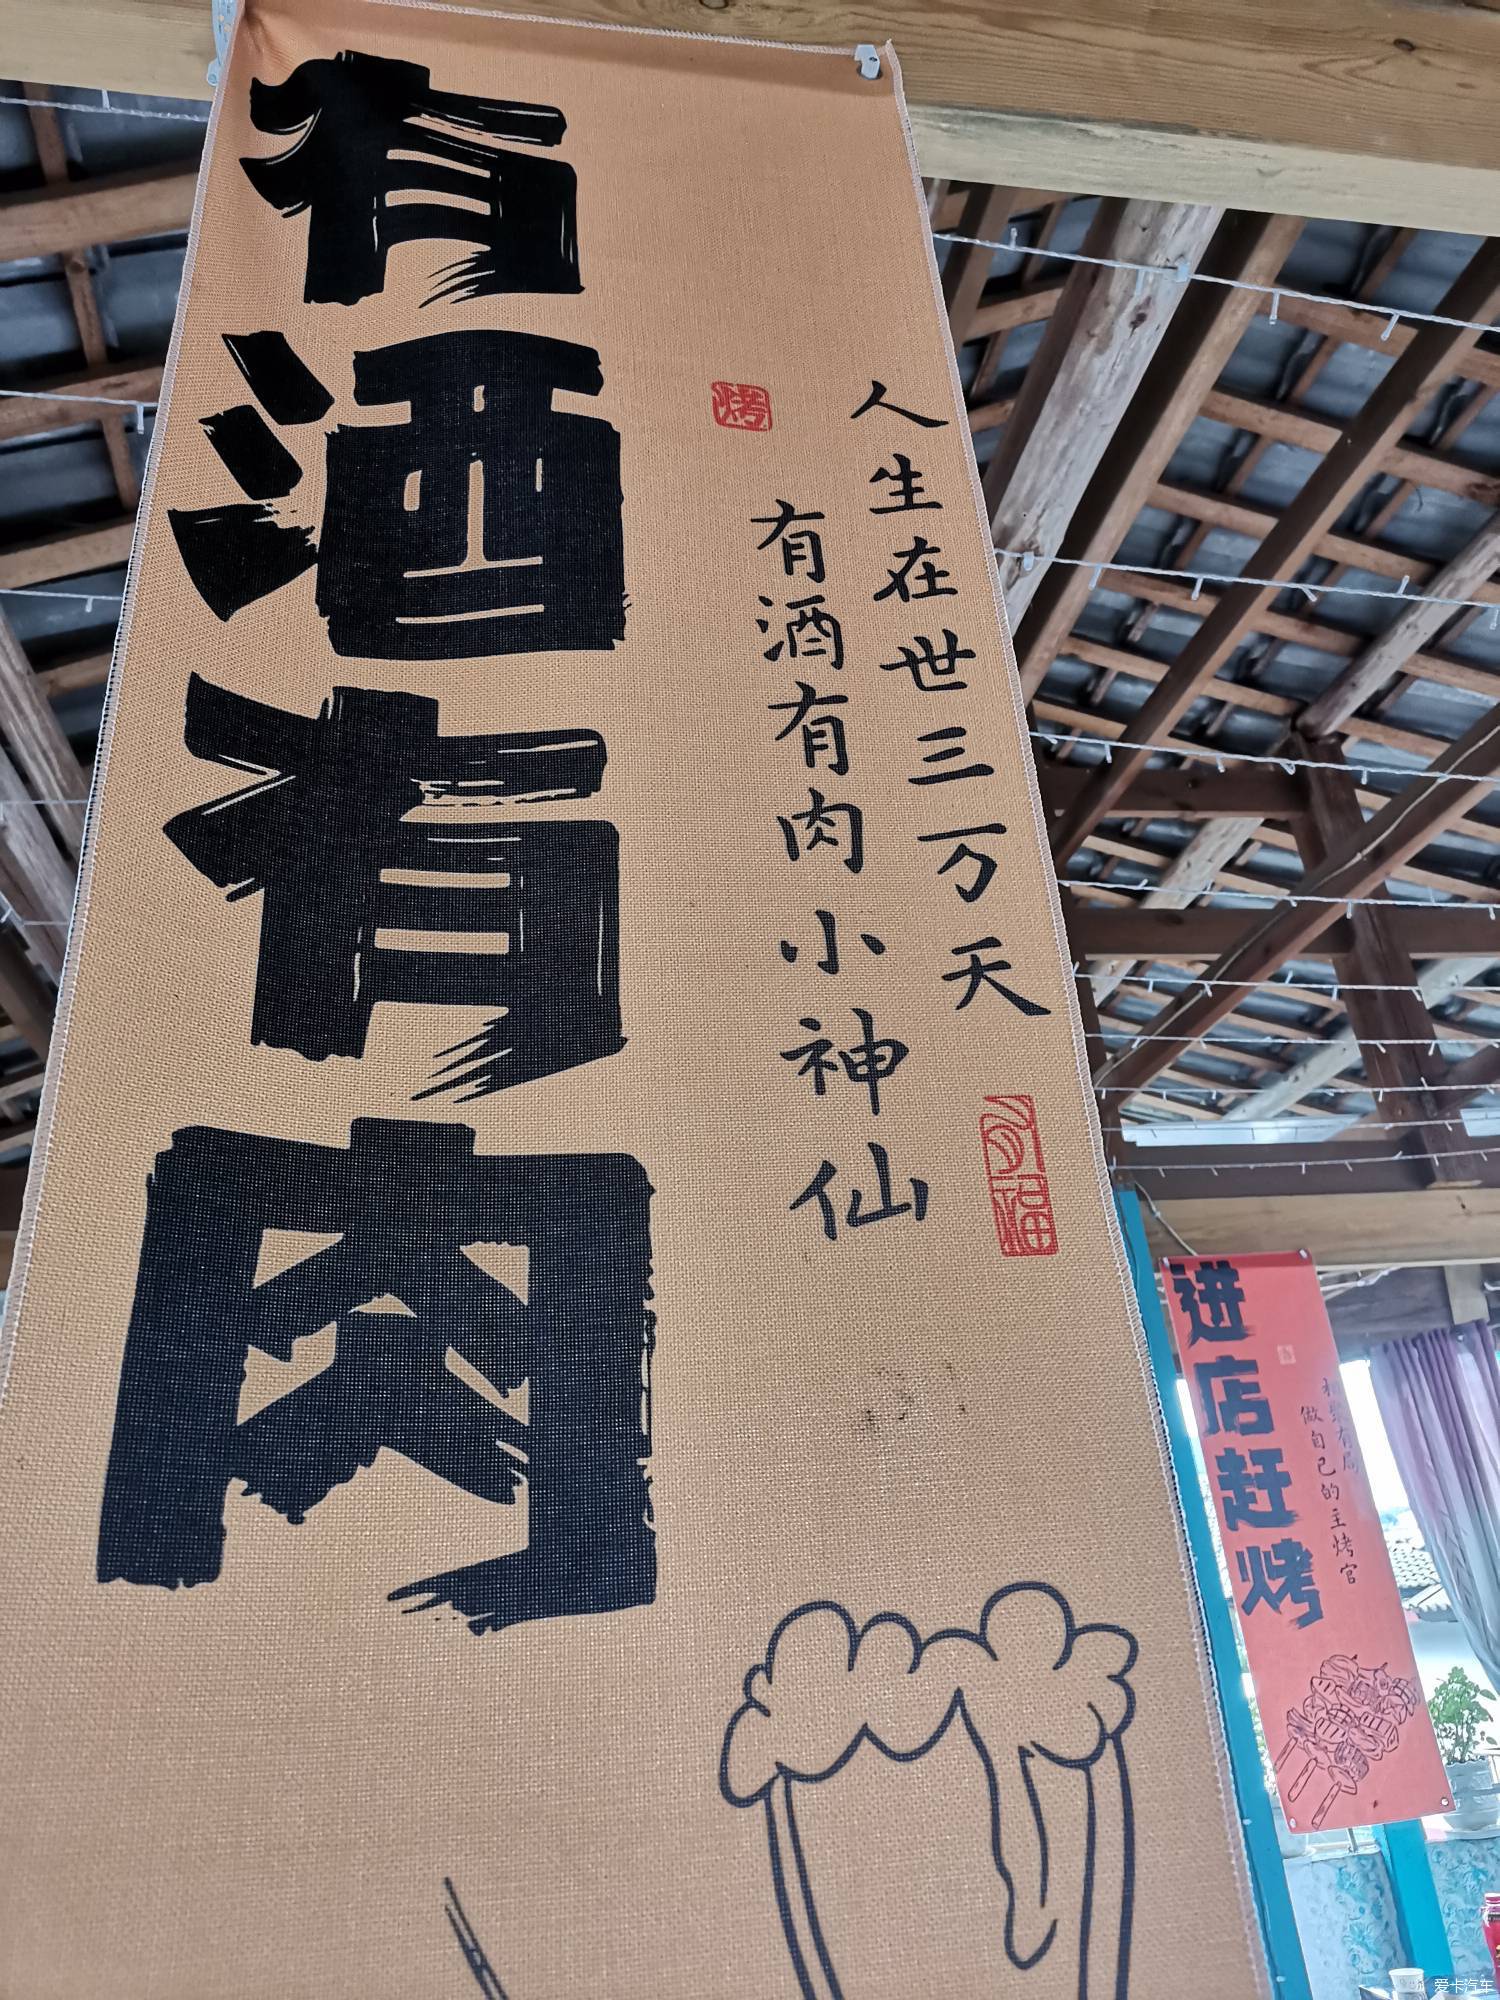 有酒有肉
烤
人生在世三万天
有酒有肉小神仙
进店赶烤
做自己的主烤官
爱卡汽车